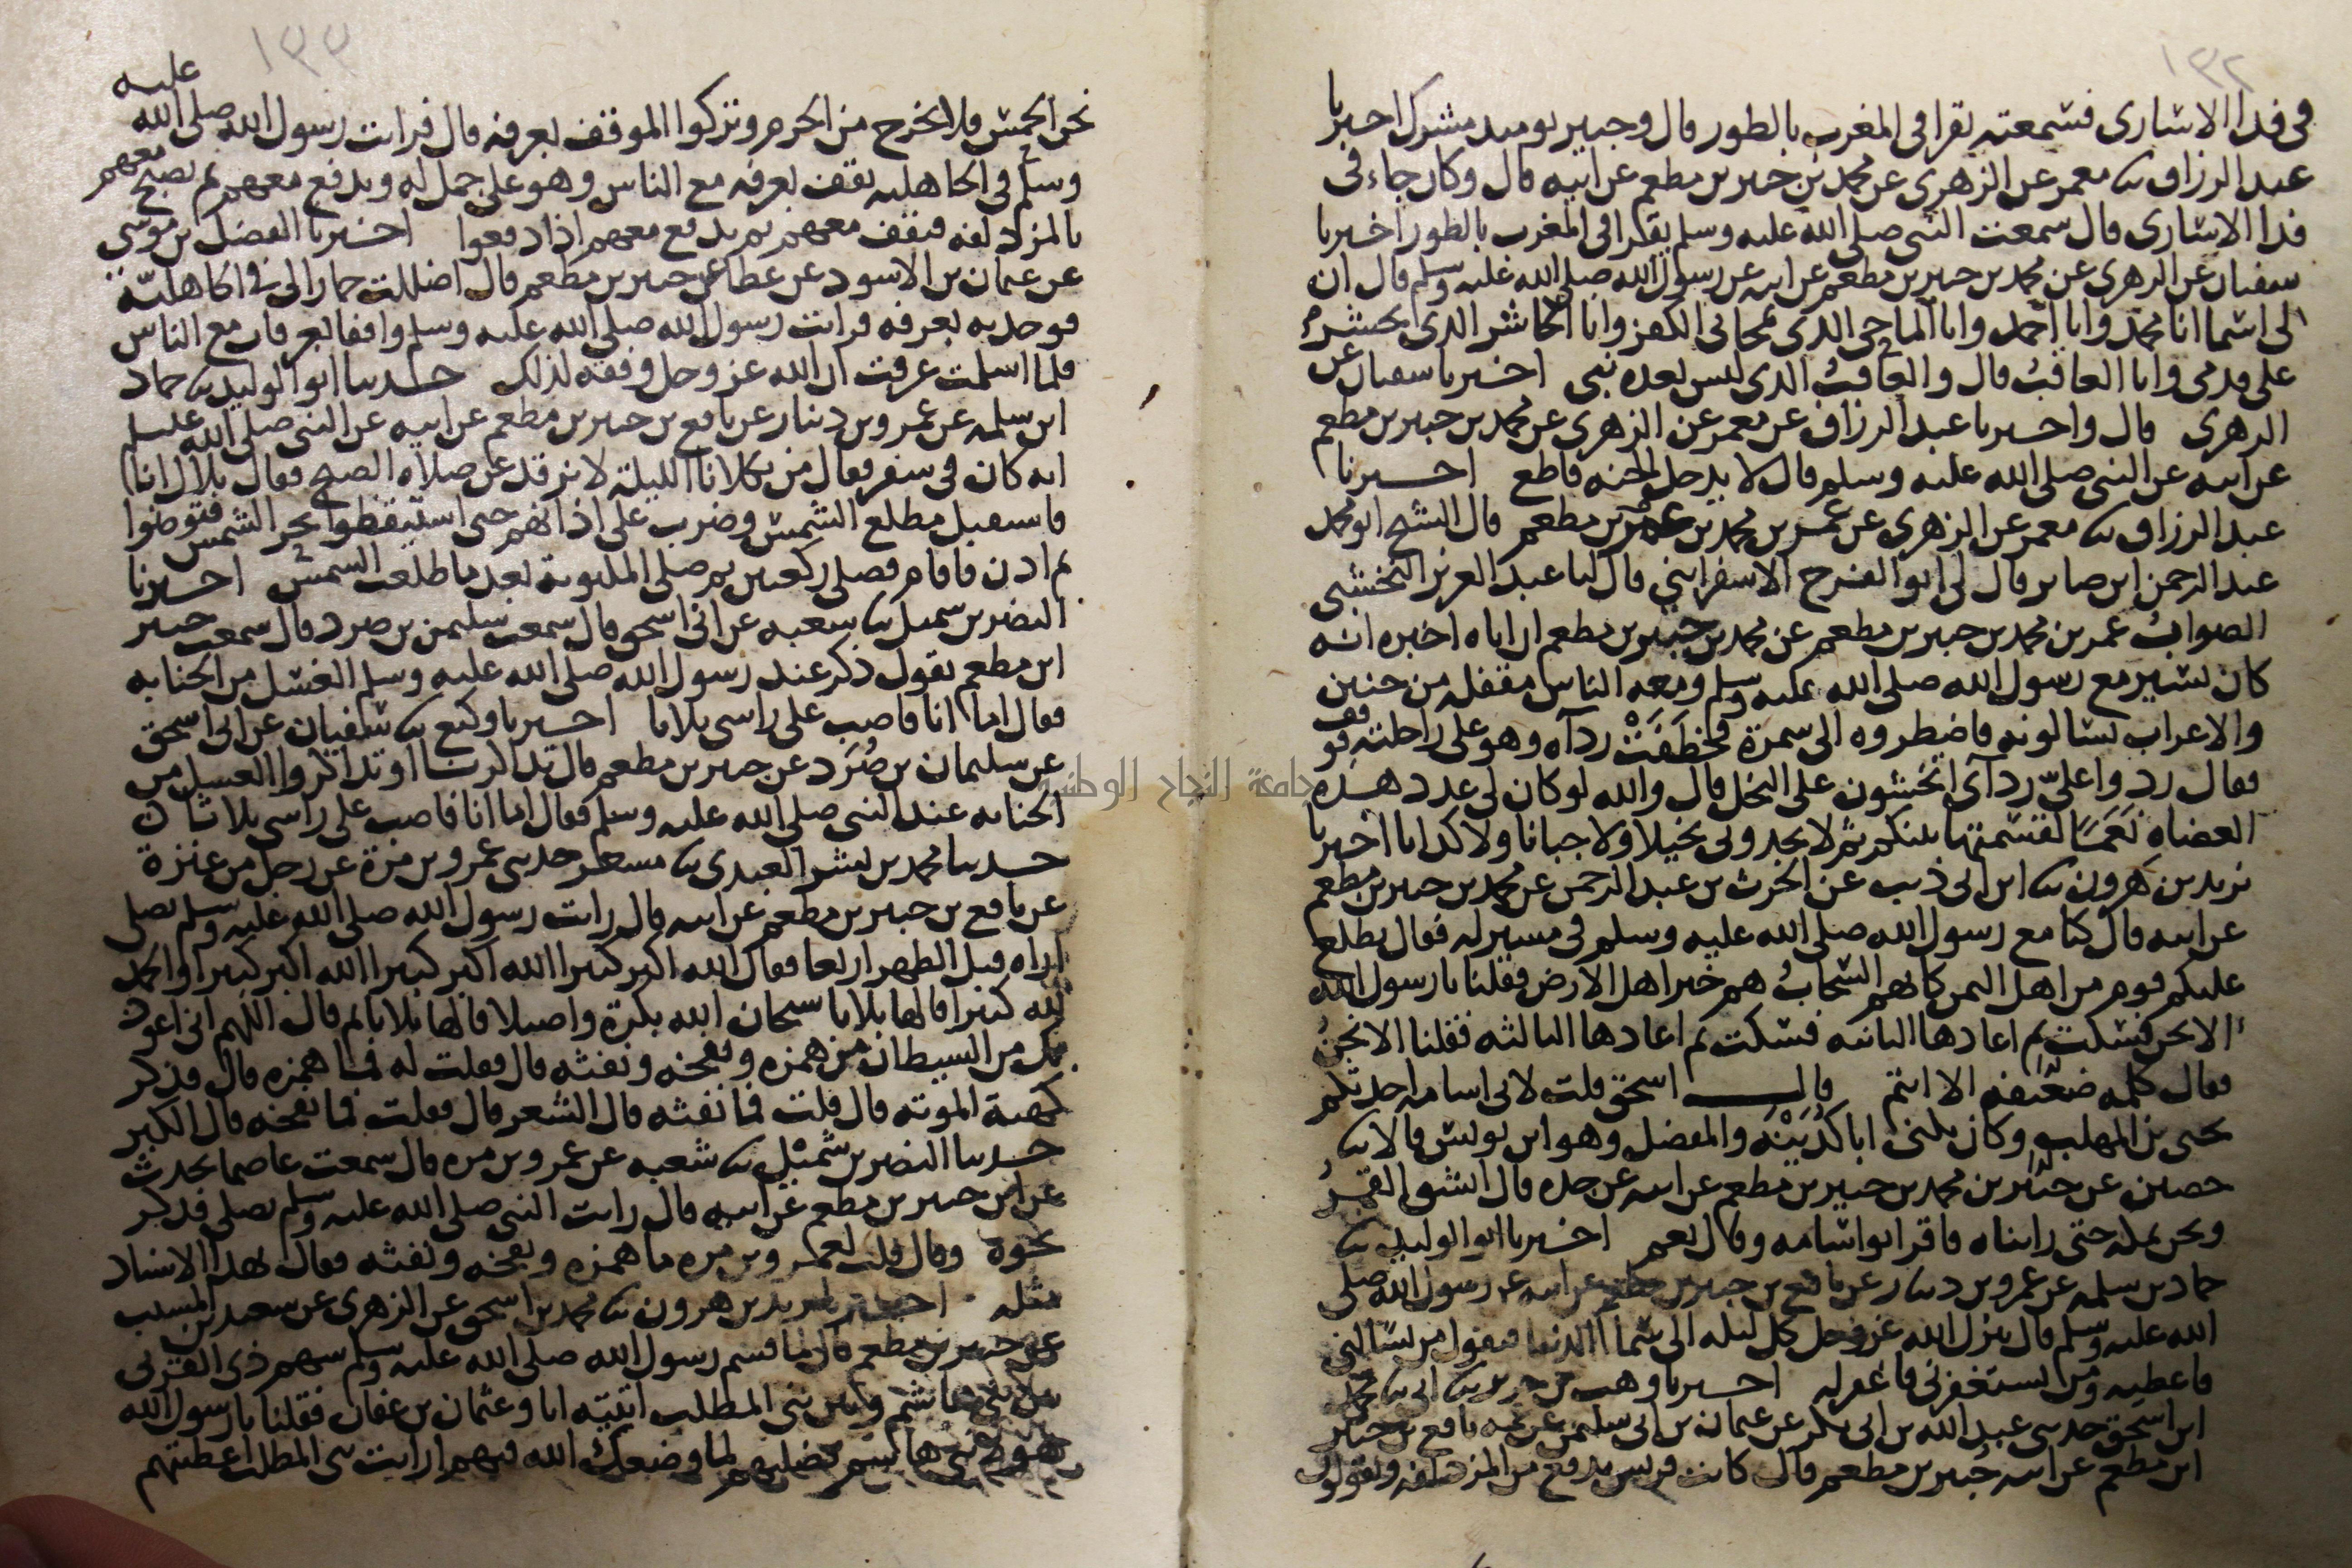 ١٣٢
فى فدا الاسارى فسمعته يقرا فى المغرب بالطور قال وجبير يومىد مشرك اخبرنا
عبد الرزاق ىا معمر عن الزهرى عن محمد بن جبير بن مطعم عن ابيه قال وكان جاء فى
فدا الاسارى قال سمعت النبى صلى الله عليه وسلم يقرا فى المغرب بالطور اخبرنا
سفيان عن الزهرى عن محمد بن جبير بن مطعم عن ابيه عن رسول الله صلى الله عليه وسلم قال ان
لى اسما انا محمد وانا احمد وانا الماحى الذى يمحا بى الكفر وانا الحاشر الذى يحشر
على قدمى وانا العاقب قال والعاقب الذى ليس بعده نبى اخبرنا سفيان عن
الزهرى قال واخبرنا عبد الرزاق عن معمر عن الزهرى عن محمد بن جبير بن مطعم
عن ابيه عن النبى صلى الله عليه وسلم قال لا يدخل الجنه قاطع اخبرنا
عبد الرزاق ىا معمر عن الزهرى عن عمر بن محمد بن عمرو بن مطعم قال الشيخ ابو محمد
عبد الرحمن ابن صابر قال لى ابو الفرج الاسفرايني قال لنا عبد العزيز النخشبى
الصواب عمر بن محمد بن جبير بن مطعم عن محمد بن جبير بن مطعم ان اباه اخبره انه
كان يسير مع رسول الله صلى الله عليه وسلم ومعه الناس مقفله من حنين
والاعراب يسالونه فاضطروه الى سمرة فخطفت رداه وهو على راحلته فوقف
فقال ردوا على ردآى اتخشون على البخل قال والله لو كان لى عدد هذه
العضاه نعما لقسمتها بينكم ثم لا تجدونى بخيلا ولا جبانا ولا كذابا اخبرنا
يزيد بن هرون ىا ابن ابى ذيب عن الحرث بن عبد الرحمن عن محمد بن جبير بن مطعم
عن ابيه قال كنا مع رسول الله صلى الله عليه وسلم فى مسير له فقال يطلع
عليكم قوم من اهل اليمن كانهم السحاب هم خير اهل الارض فقلنا يا رسول الله
الا نحن فسكت ثم اعادها الثانيه فسكت ثم اعادها الثالثه فقلنا الا نحن
فقال كلمه ضعيفه الا انتم قال اسحق قلت لابى اسامه احدثكم
يحيى بن المهلب وكان يكنى ابا كدينة والمفضل وهو ابن يونس قالا ىا
حصين عن جبير بن محمد بن جبير بن مطعم عن ابيه عن جده قال انشق القمر
ونحن بمكه حتى رايناه فاقر ابو اسامه وقال نعم اخبرنا ابو الوليد ىا
حماد بن سلمه عن عمرو بن دينار عن نافع بن جبير بن مطعم عن ابيه عن رسول الله صلى
الله عليه وسلم قال ينزل الله عز وجل كل ليله الى سما الدنيا فيقول من يسالنى
فاعطيه ومن يستغفرنى فاغفر له اخبرنا وهب بن جرير ىا ابى ىا محمد
ابن اسحق حدثنى عبد الله بن ابى بكر عن عثمان بن ابى سليمن عن عمه نافع بن جبير
ابن مطعم عن ابيه جبير بن مطعم قال كانت قريش يدفع من المزدلفه ويقولون
١٣٣
نحن الحمس فلا نخرج من الحرم وتركوا الموقف بعرفه قال فرايت رسول الله صلى الله عليه
وسلم فى الجاهليه يقف بعرفه مع الناس وهو على جمل له ويدفع معهم ثم يصبح معهم
بالمزدلفه فيقف معهم ثم يدفع معهم اذا دفعوا اخبرنا الفضل بن موسى
عن عثمان بن الاسود عن عطا عن جبير بن مطعم قال اضللت حمارا لى فى الجاهليه
فوجدته بعرفه فرايت رسول الله صلى الله عليه وسلم واقفا بعرفات مع الناس
فلما اسلمت عرفت ان الله عز وجل وفقه لذلك حدثنا ابو الوليد ىا حماد
ابن سلمه عن عمرو بن دينار عن نافع بن جبير بن مطعم عن ابيه عن النبى صلى الله عليه وسلم
انه كان فى سفر فقال من يكلانا الليلة لا نرقد عن صلاه الصبح فقال بلال انا
فاستقبل مطلع الشمس وضرب على اذانهم حتى استيقظوا بحر الشمس فتوضوا
ثم اذن فاقام فصلى ركعتين ثم صلى المكتوبة بعد ما طلعت الشمس اخبرنا
النضر بن شميل ىا شعبه عن ابى اسحق قال سمعت سليمن بن صرد قال سمعت جبير
ابن مطعم يقول ذكر عند رسول الله صلى الله عليه وسلم الغسل من الجنابه
فقال اما انا فاصب على راسى ثلاثا اخبرنا وكيع ىا سفيان عن ابى اسحق
عن سليمان بن صرد عن جبير بن مطعم قال تذاكرنا او تذاكروا الغسل من
الجنابه عند النبى صلى الله عليه وسلم فقال اما انا فاصب على راسى ثلاثا
حدثنا محمد بن بشر العبدى ىا مسعر حدثنى عمرو بن مرة عن رجل من عنزة
عن نافع بن جبير بن مطعم عن ابيه قال رايت رسول الله صلى الله عليه وسلم يصلى
اراه قبل الظهر اربعا فقال الله اكبر كبيرا الله اكبر كبيرا الله اكبر كبيرا والحمد
لله كثيرا قالها ثلاثا سبحان الله بكرة واصيلا قالها ثلاثا ثم قال اللهم انى اعوذ
بك من الشيطان من همزه ونفخه ونفثه قال فقلت له فما همزه قال فذكر
كهيئة الموته قال قلت فما نفثه قال الشعر قال فقلت فما نفخه قال الكبر
حدثنا النضر بن شميل ىا شعبه عن عمرو بن مره قال سمعت عاصما يحدث
عن ابن جبير بن مطعم عن ابيه قال رايت النبى صلى الله عليه وسلم يصلى فذكر
نحوه وقال قلت لعمرو بن مره ما همزه ونفخه ونفثه فقال بهذا الاسناد
مثله اخبرنا يزيد بن هرون ىا محمد بن اسحق عن الزهرى عن سعيد بن المسيب
عن جبير بن مطعم قال لما قسم رسول الله صلى الله عليه وسلم سهم ذى القربى
بين بنى هاشم وبين بنى المطلب اتيته انا وعثمان بن عفان فقلنا يا رسول الله
هولا بنى هاشم فضلهم لما وضعك الله فيهم ارايت بنى المطلب اعطيتهم
جامعة النجاح الوطنية